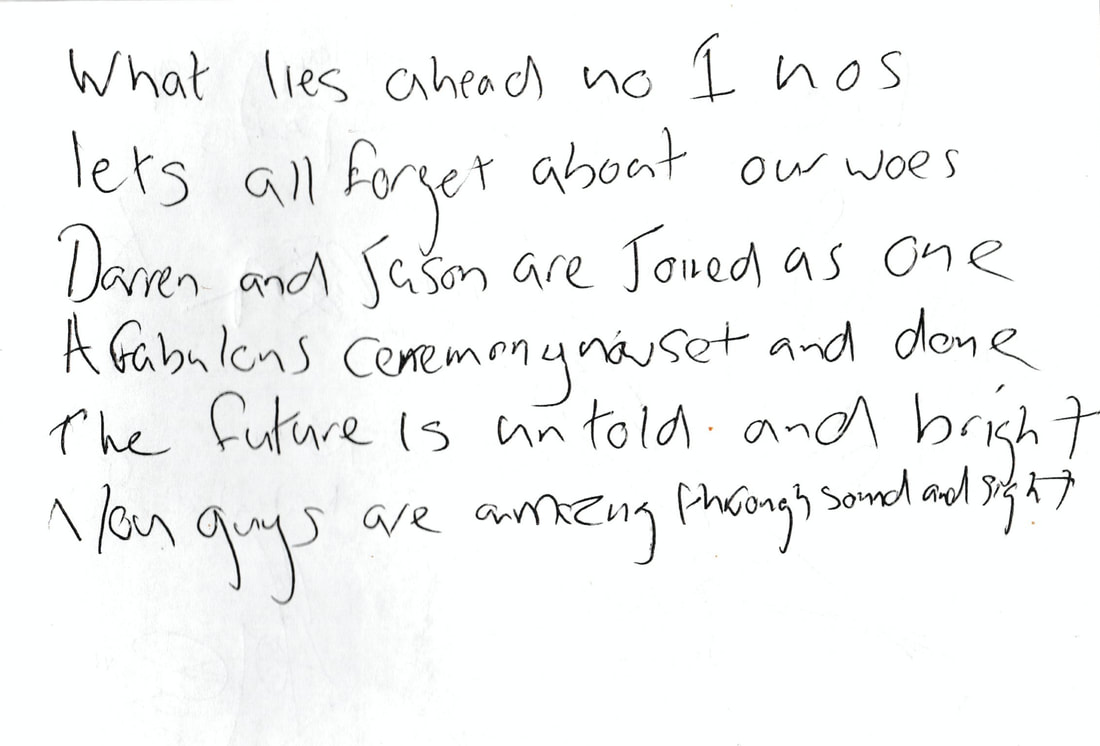 What lies ahead no 1 nos
lets all forget about our woes
Darren and Jason are Joined as one
A fabulous ceremony now set and done
The future is untold and bright
You guys are amazing through sound and sight